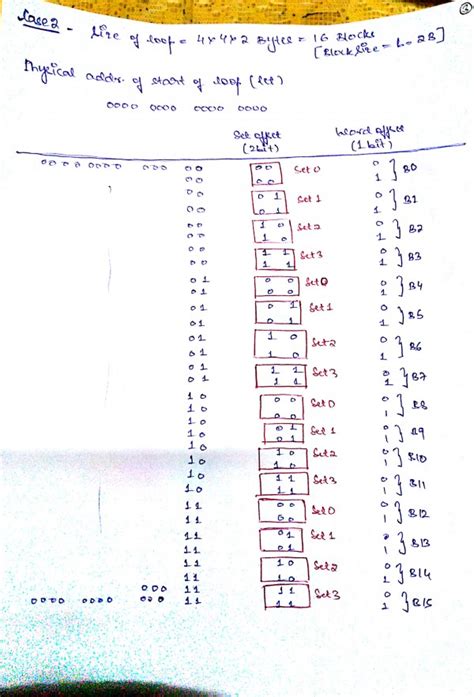 Case 2 - Size of loop = 4x4x2 Bytes = 16 Blocks
[Block size = L = 2B]
Physical addr. of start of loop (let)
0000 0000 0000 0000
Set offset Word offset
(2bit) (1 bit)
0000 0000 000 00 00 Set 0 0 } B0
00 00 1
00 01 Set 1 0 } B1
00 01 1
00 10 Set 2 0 } B2
00 10 1
00 11 Set 3 0 } B3
00 11 1
01 00 Set 0 0 } B4
01 00 1
01 01 Set 1 0 } B5
01 01 1
01 10 Set 2 0 } B6
01 10 1
01 11 Set 3 0 } B7
01 11 1
10 00 Set 0 0 } B8
10 00 1
10 01 Set 1 0 } B9
10 01 1
10 10 Set 2 0 } B10
10 10 1
10 11 Set 3 0 } B11
10 11 1
11 00 Set 0 0 } B12
11 00 1
11 01 Set 1 0 } B13
11 01 1
11 10 Set 2 0 } B14
11 10 1
000 11 11 Set 3 0 } B15
0000 0000 000 11 11 1